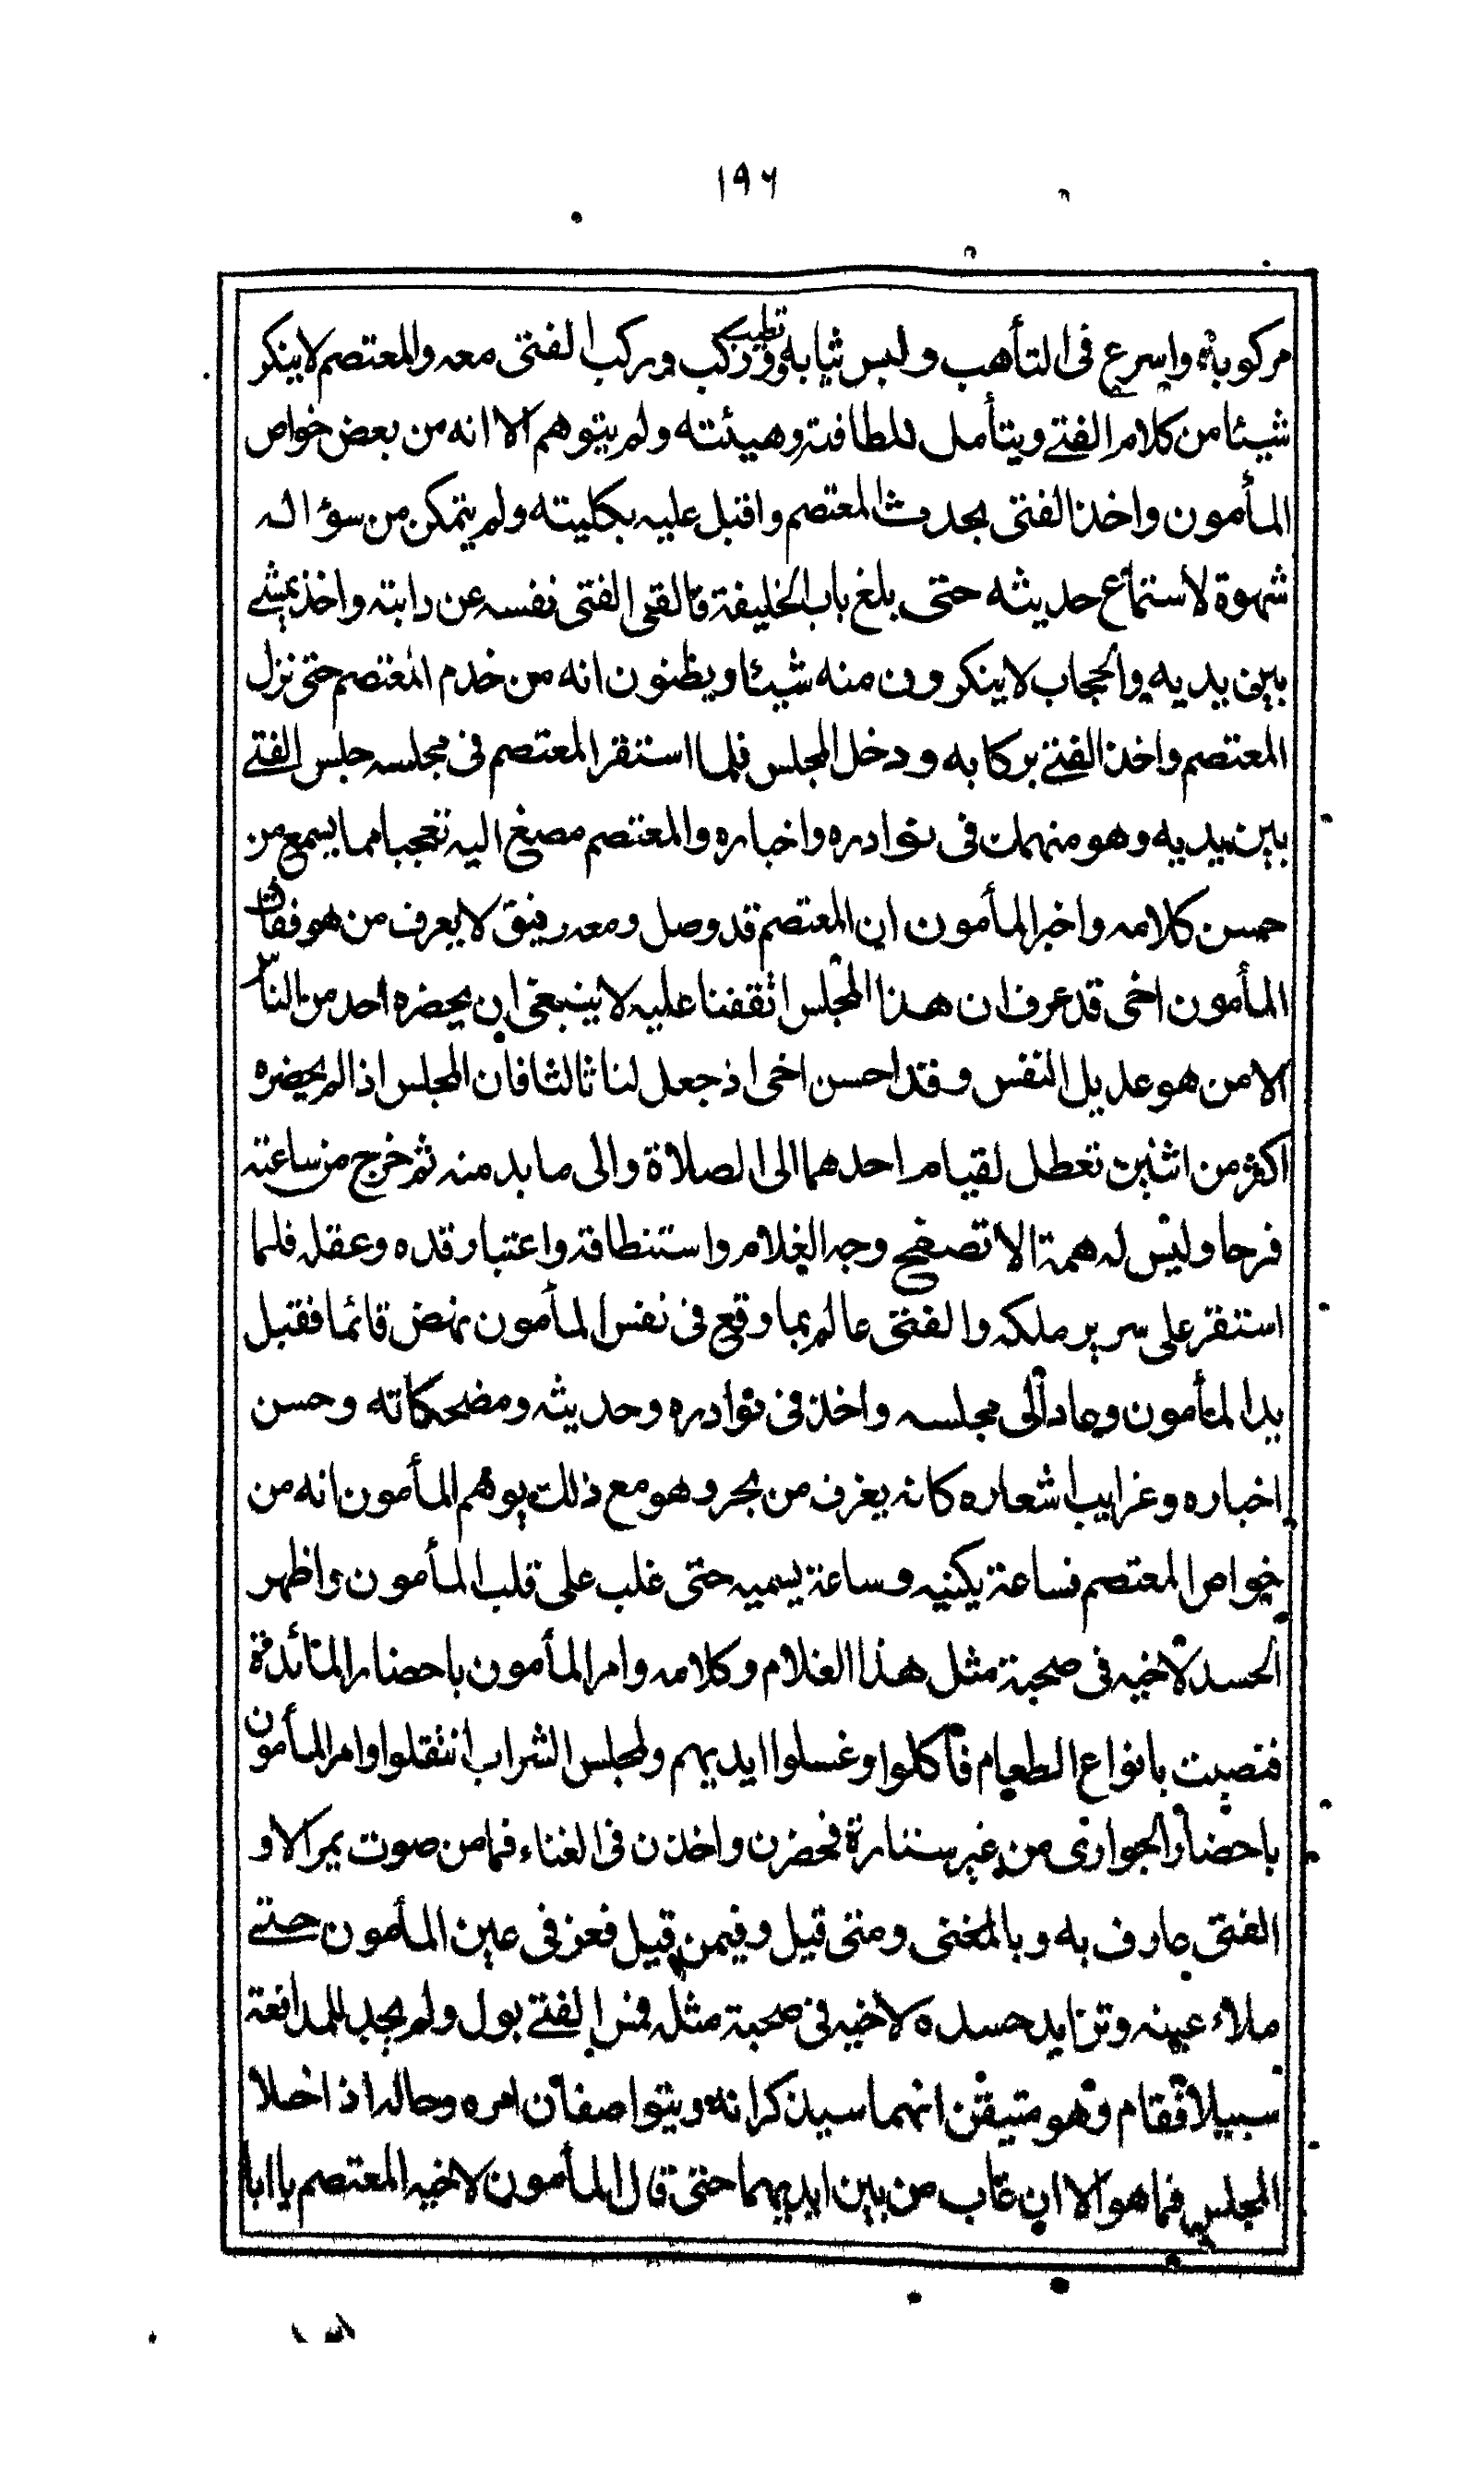 ١٩٦
مركوبه واسرع فى التأهب ولبس ثيابه وتطيب وركب وركب الفتى معه والمعتصم لاينكر
شيئا من كلام الفتى ويتأمل للطافته وهيئته ولم يتوهم الا انه من بعض خواص
المأمون واخذ الفتى بحدث المعتصم واقبل عليه بكليته ولم يتمكن من سؤاله
شهوة لاستماع حديثه حتى بلغ باب الخليفة فالقى الفتى نفسه عن دابته واخذ يمشى
بين يديه والحجاب لاينكرون منه شيئا ويظنون انه من خدم المعتصم حتى نزل
المعتصم واخذ الفتى بركابه ودخل المجلس فلما استقر المعتصم فى مجلسه جلس الفتى
بين يديه وهو منهمك فى نوادره واخباره والمعتصم مصغ اليه تعجبا مما يسمع من
حسن كلامه واخبر المأمون ان المعتصم قد وصل ومعه رفيق لايعرف من هو فقال
المأمون اخى قد عرف ان هذا المجلس اتفقنا عليه لاينبغى ان يحضره احد من الناس
الا من هو عديل النفس وقد احسن اخى اذ جعل لنا ثالثا فان المجلس اذا لم يحضره
اكثر من اثنين تعطل لقيام احدهما الى الصلاة والى مابد منه ثم خرج من ساعته
فرحا وليس له همة الا تصفح وجه الغلام واستنطاقه واعتبار قده وعقله فلما
استقر على سرير ملكه والفتى عالم بما وقع فى نفس المأمون نهض قائما فقبل
يد المأمون وعاد الى مجلسه واخذ فى نوادره وحديثه ومضحكاته وحسن
اخباره وغرايب اشعاره كانه يغرف من بحر وهو مع ذلك يوهم المأمون انه من
خواص المعتصم فساعة يكنيه وساعة يسميه حتى غلب على قلب المأمون واظهر
الحسد لاخيه فى صحبة مثل هذا الغلام وكلامه وامر المأمون باحضار المائدة
فنصبت بانواع الطعام فأكلوا وغسلوا ايديهم ولمجلس الشراب انتقلوا وامر المأمون
باحضار الجوارى من غير ستارة فحضرن واخذن فى الغناء فما من صوت يمر الا و
الفتى عارف به وبالمغنى ومتى قيل وفيمن قيل فعز فى عين المأمون حتى
ملاء عينه وتزايد حسده لاخيه فى صحبة مثله فمس الفتى بول ولم يجد للمدافعة
سبيلا فقام وهو متيقن انهما سيذكرانه ويتواصفان امره وحاله اذا خلا
المجلس فما هو الا ان غاب من بين ايديهما حتى قال المأمون لاخيه المعتصم يا ابا